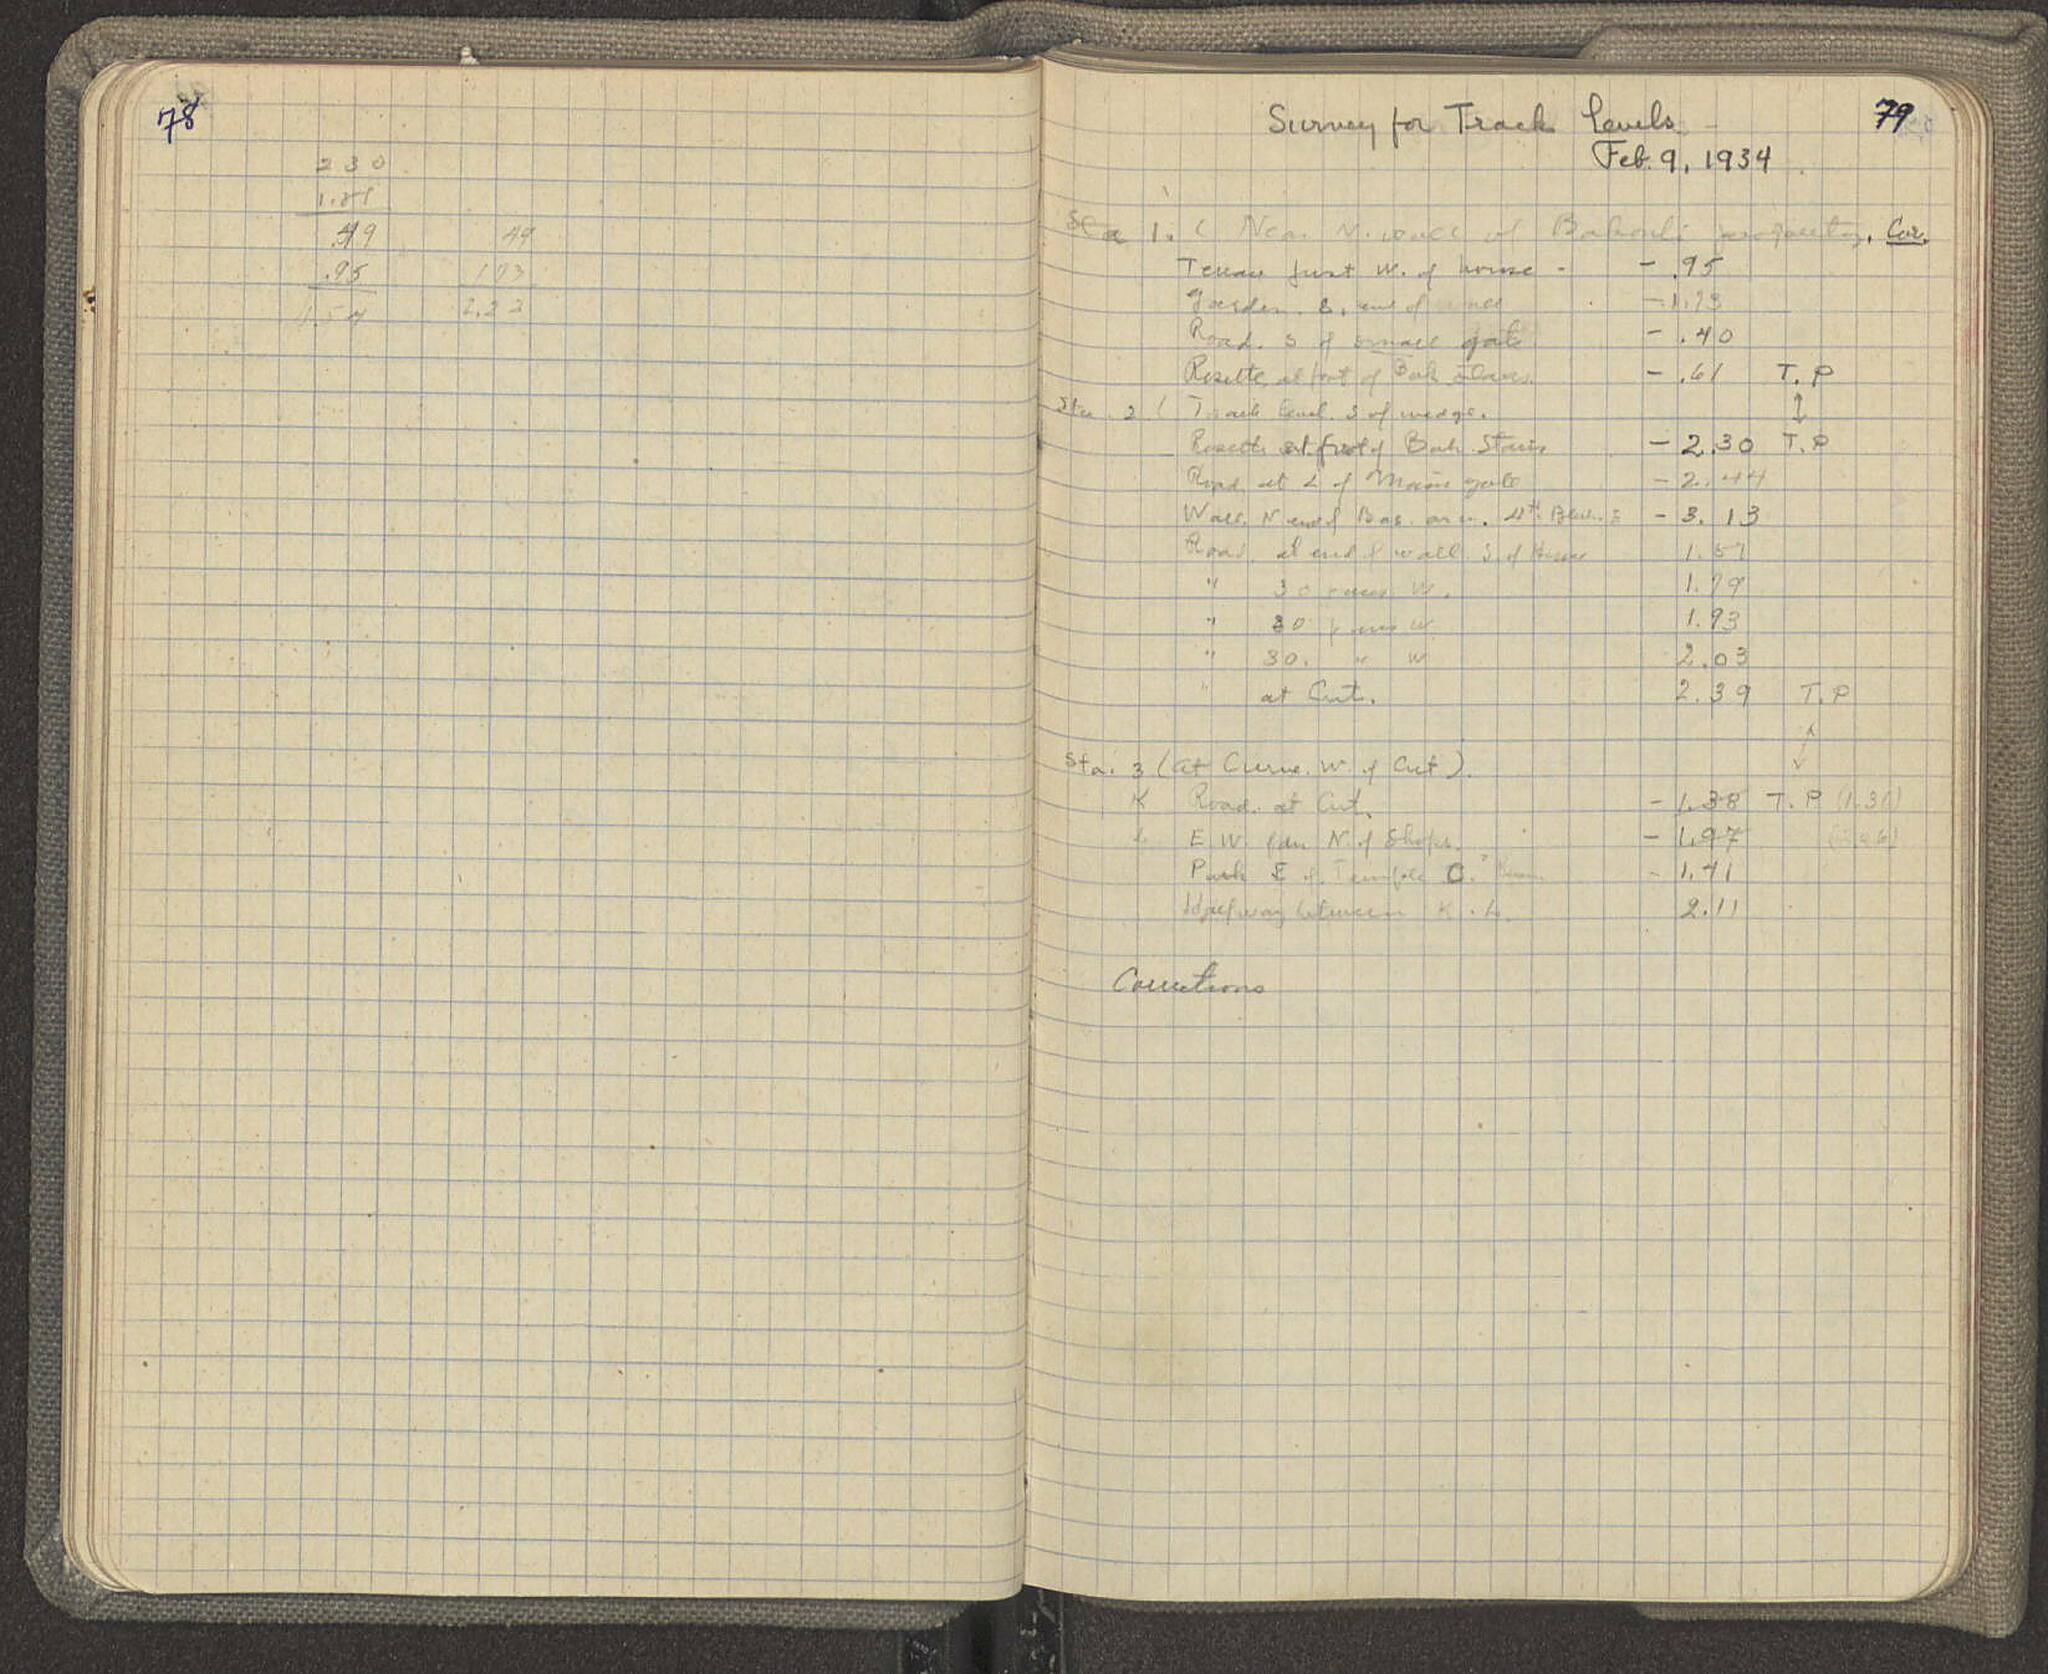 78
2 3 0
1.81
.49 49
.95
2.23
79
Survey for Track Levels
Feb. 9, 1934
Sta 1. ( Near N. wall of property. Cor.
Terrace just W. of house - - .95
Garden. S. end of - 1.73
Road. S of small gate - .40
Rosette at foot of Bah Stairs. - .61 T.P
Sta. 2 ( Track level. S of wedge.
Rosette at foot of Bah. Stairs - 2.30 T.P
Road at of Main gate - 2.44
Wall. N end of Bas. 4th - 3.13
Road at end of wall. S. of House 1.57
" 30 paces W. 1.79
" 30 paces W 1.93
" 30. " W 2.03
" at Cut. 2.39 T.P
Sta. 3 (at Curve. W. of Cut).
K Road. at Cut. - 1.38 T.P (1.31)
E W. N. of Shops. - 1.97
Path E of Temple C. - 1.41
Halfway between K. L. 2.11
Corrections